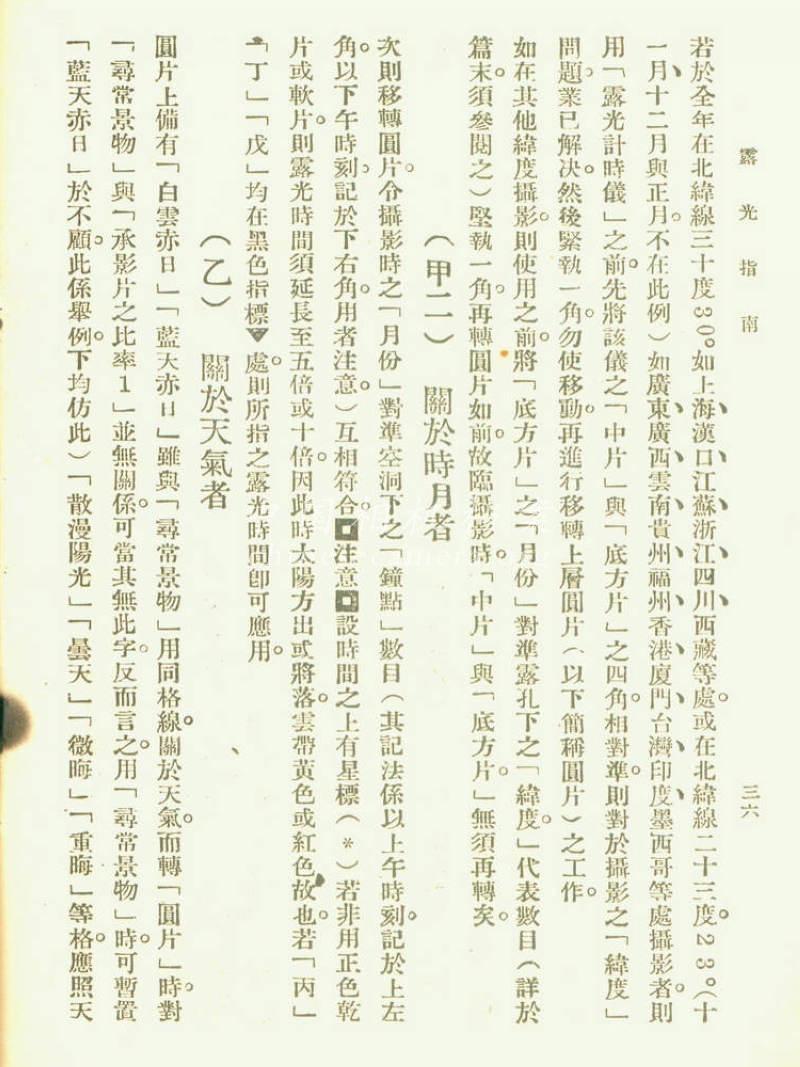 露光指南
三六
若於全年在北緯線三十度30°如上海、漢口、江蘇、浙江、四川、西藏等處。或在北緯線二十三度。23°(十
一月、十二月與正月。不在此例)如廣東、廣西、雲南、貴州、福州、香港、廈門、台灣、印度、墨西哥等處攝影者。則
用「露光計時儀」之前。先將該儀之「中片」與「底方片」之四角。相對準。則對於攝影之「緯度」
問題。業已解决。然後緊執一角。勿使移動。再進行移轉上層圓片(以下簡稱圓片)之工作。
如在其他緯度攝影。則使用之前。將「底方片」之「月份」對準露孔下之「緯度。」代表數目(詳於
篇末。須參閱之)堅執一角。再轉圓片如前。故臨攝影時。「中片」與「底方片。」無須再轉矣。
(甲二) 關於時月者
次則移轉圓片。令攝影時之「月份」對準空洞下之「鐘點」數目(其記法係以上午時刻。記於上左
角。以下午時刻。記於下右角。用者注意。)互相符合。◘注意◘設時間之上有星標(*)若非用正色乾
片或軟片。則露光時間須延長至五倍或十倍。因此時太陽方出或將落。雲帶黃色或紅色故也。若「丙」
「丁」「戊」均在黑色指標▼處。則所指之露光時間卽可應用。
(乙) 關於天氣者
圓片上備有「白雲赤日」「藍天赤日」雖與「尋常景物」用同格線。關於天氣。而轉「圓片」時。對
「尋常景物」與「承影片之比率1」並無關係。可當其無此字。反而言之。用「尋常景物」時。可暫置
「藍天赤日」於不顧。此係舉例。下均仿此)「散漫陽光」「曇天」「微晦」「重晦」等格。應照天